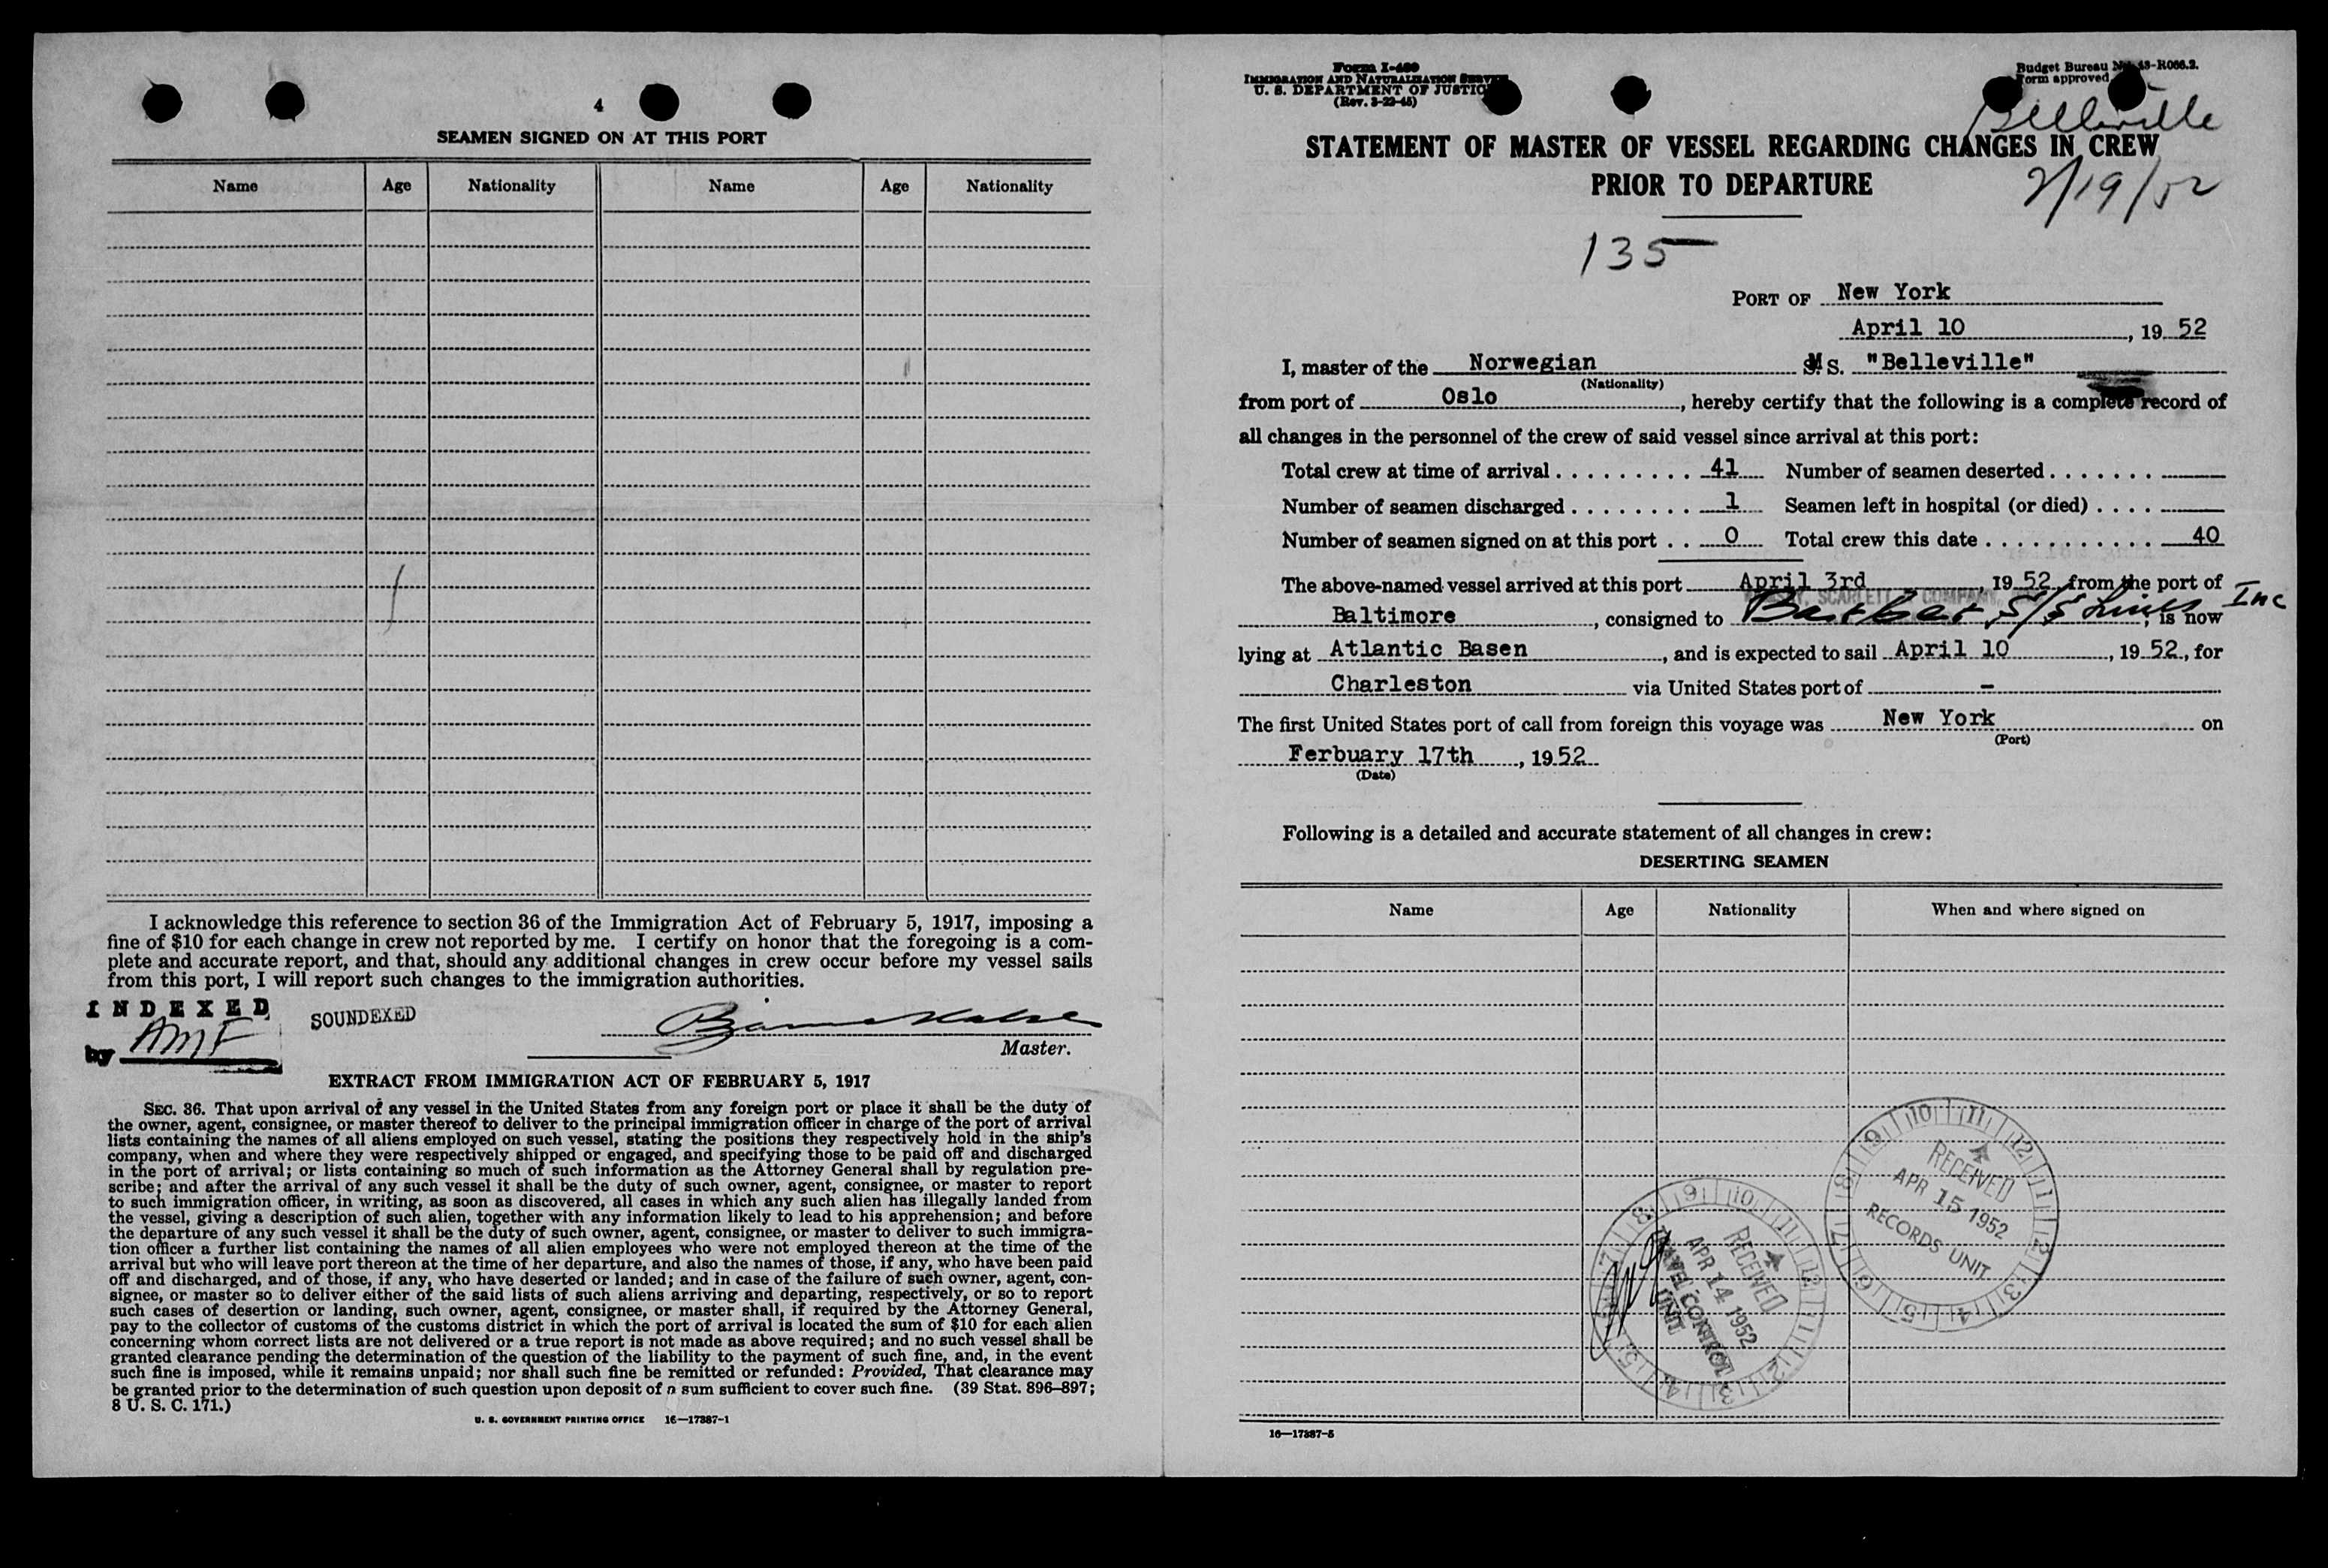 4
SEAMEN SIGNED ON AT THIS PORT
Name Age Nationality Name Age Nationality
I acknowledge this reference to section 36 of the Immigration Act of February 5, 1917, imposing a
fine of $10 for each change in crew not reported by me. I certify on honor that the foregoing is a com-
plete and accurate report, and that, should any additional changes in crew occur before my vessel sails
from this port, I will report such changes to the immigration authorities.
INDEXED
by AMF
SOUNDEXED
Master.
EXTRACT FROM IMMIGRATION ACT OF FEBRUARY 5, 1917
SEC. 36. That upon arrival of any vessel in the United States from any foreign port or place it shall be the duty of
the owner, agent, consignee, or master thereof to deliver to the principal immigration officer in charge of the port of arrival
lists containing the names of all aliens employed on such vessel, stating the positions they respectively hold in the ship's
company, when and where they were respectively shipped or engaged, and specifying those to be paid off and discharged
in the port of arrival; or lists containing so much of such information as the Attorney General shall by regulation pre-
scribe; and after the arrival of any such vessel it shall be the duty of such owner, agent, consignee, or master to report
to such immigration officer, in writing, as soon as discovered, all cases in which any such alien has illegally landed from
the vessel, giving a description of such alien, together with any information likely to lead to his apprehension; and before
the departure of any such vessel it shall be the duty of such owner, agent, consignee, or master to deliver to such immigra-
tion officer a further list containing the names of all alien employees who were not employed thereon at the time of the
arrival but who will leave port thereon at the time of her departure, and also the names of those, if any, who have been paid
off and discharged, and of those, if any, who have deserted or landed; and in case of the failure of such owner, agent, con-
signee, or master so to deliver either of the said lists of such aliens arriving and departing, respectively, or so to report
such cases of desertion or landing, such owner, agent, consignee, or master shall, if required by the Attorney General,
pay to the collector of customs of the customs district in which the port of arrival is located the sum of $10 for each alien
concerning whom correct lists are not delivered or a true report is not made as above required; and no such vessel shall be
granted clearance pending the determination of the question of the liability to the payment of such fine, and, in the event
such fine is imposed, while it remains unpaid; nor shall such fine be remitted or refunded: Provided, That clearance may
be granted prior to the determination of such question upon deposit of a sum sufficient to cover such fine. (39 Stat. 896–897;
8 U. S. C. 171.)
U. S. GOVERNMENT PRINTING OFFICE 16—17387-1
Form I-489
IMMIGRATION AND NATURALIZATION SERVICE
U. S. DEPARTMENT OF JUSTICE
(Rev. 3-22-45)
Budget Bureau No. 43-R066.2.
Form approved
Belleville
STATEMENT OF MASTER OF VESSEL REGARDING CHANGES IN CREW
PRIOR TO DEPARTURE
2/19/52
135
PORT OF New York
April 10, 19 52
I, master of the Norwegian M S. "Belleville"
(Nationality)
from port of Oslo, hereby certify that the following is a complete record of
all changes in the personnel of the crew of said vessel since arrival at this port:
Total crew at time of arrival 41 Number of seamen deserted
Number of seamen discharged 1 Seamen left in hospital (or died)
Number of seamen signed on at this port 0 Total crew this date 40
The above-named vessel arrived at this port April 3rd, 19 52 from the port of
Baltimore, consigned to Barber S/S Lines Inc, is now
lying at Atlantic Basen, and is expected to sail April 10, 19 52, for
Charleston via United States port of -
The first United States port of call from foreign this voyage was New York on
(Port)
Ferbuary 17th, 19 52
(Date)
Following is a detailed and accurate statement of all changes in crew:
DESERTING SEAMEN
Name Age Nationality When and where signed on
RECEIVED
APR 15 1952
RECORDS UNIT
RECEIVED
APR 14 1952
TRAVEL CONTROL
UNIT
16—17387-5